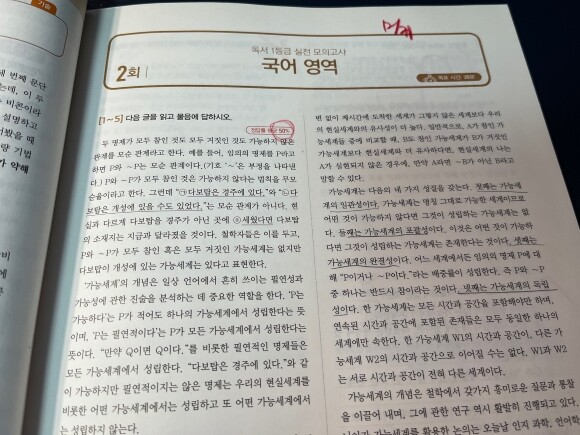 기술
몇
독서 1등급 실전 모의고사
2회
국어 영역
목표 시간
[1~5] 다음 글을 읽고 물음에 답하시오.
정답률 평균 50%
두 명제가 모두 참인 것도 모두 거짓인 것도 가능하지 않은
관계를 모순 관계라고 한다. 예를 들어, 임의의 명제를 P라고
하면 P와 ~P는 모순 관계이다.(기호 '~'은 부정을 나타낸
다.) P와 ~P가 모두 참인 것은 가능하지 않다는 법칙을 무모
순율이라고 한다. 그런데 "㉠다보탑은 경주에 있다."와 "㉡다
보탑은 개성에 있을 수도 있었다."는 모순 관계가 아니다. 현
실과 다르게 다보탑을 경주가 아닌 곳에 ⓐ세웠다면 다보탑
의 소재지는 지금과 달라졌을 것이다. 철학자들은 이를 두고,
P와 ~P가 모두 참인 혹은 모두 거짓인 가능세계는 없지만
다보탑이 개성에 있는 가능세계는 있다고 표현한다.
'가능세계'의 개념은 일상 언어에서 흔히 쓰이는 필연성과
가능성에 관한 진술을 분석하는 데 중요한 역할을 한다. 'P는
가능하다'는 P가 적어도 하나의 가능세계에서 성립한다는 뜻
이며, 'P는 필연적이다'는 P가 모든 가능세계에서 성립한다는
뜻이다. "만약 Q이면 Q이다."를 비롯한 필연적인 명제들은
모든 가능세계에서 성립한다. "다보탑은 경주에 있다."와 같
이 가능하지만 필연적이지는 않은 명제는 우리의 현실세계를
비롯한 어떤 가능세계에서는 성립하고 또 어떤 가능세계에서
는 성립하지 않는다.
번 없이 제시간에 도착한 세계가 그렇지 않은 세계보다 우리
의 현실세계와의 유사성이 더 높다. 일반적으로, A가 참인 가
능세계들 중에 비교할 때, B도 참인 가능세계가 B가 거짓인
가능세계보다 현실세계와 더 유사하다면, 현실세계의 나는
A가 실현되지 않은 경우에, 만약 A라면 ~B가 아닌 B라고
말할 수 있다.
가능세계는 다음의 네 가지 성질을 갖는다. 첫째는 가능세
계의 일관성이다. 가능세계는 명칭 그대로 가능한 세계이므로
어떤 것이 가능하지 않다면 그것이 성립하는 가능세계는 없
다. 둘째는 가능세계의 포괄성이다. 이것은 어떤 것이 가능하
다면 그것이 성립하는 가능세계는 존재한다는 것이다. 셋째는
가능세계의 완결성이다. 어느 세계에서든 임의의 명제 P에 대
해 "P이거나 ~P이다."라는 배중률이 성립한다. 즉 P와 ~P
중 하나는 반드시 참이라는 것이다. 넷째는 가능세계의 독립
성이다. 한 가능세계는 모든 시간과 공간을 포함해야만 하며,
연속된 시간과 공간에 포함된 존재들은 모두 동일한 하나의
세계에만 속한다. 한 가능세계 W1의 시간과 공간이, 다른 가
능세계 W2의 시간과 공간으로 이어질 수는 없다. W1과 W2
는 서로 시간과 공간이 전혀 다른 세계이다.
가능세계의 개념은 철학에서 갖가지 흥미로운 질문과 통찰
을 이끌어 내며, 그에 관한 연구 역시 활발히 진행되고 있다.
가능세계를 활용한 논의는 오늘날 인지 과학, 언어학